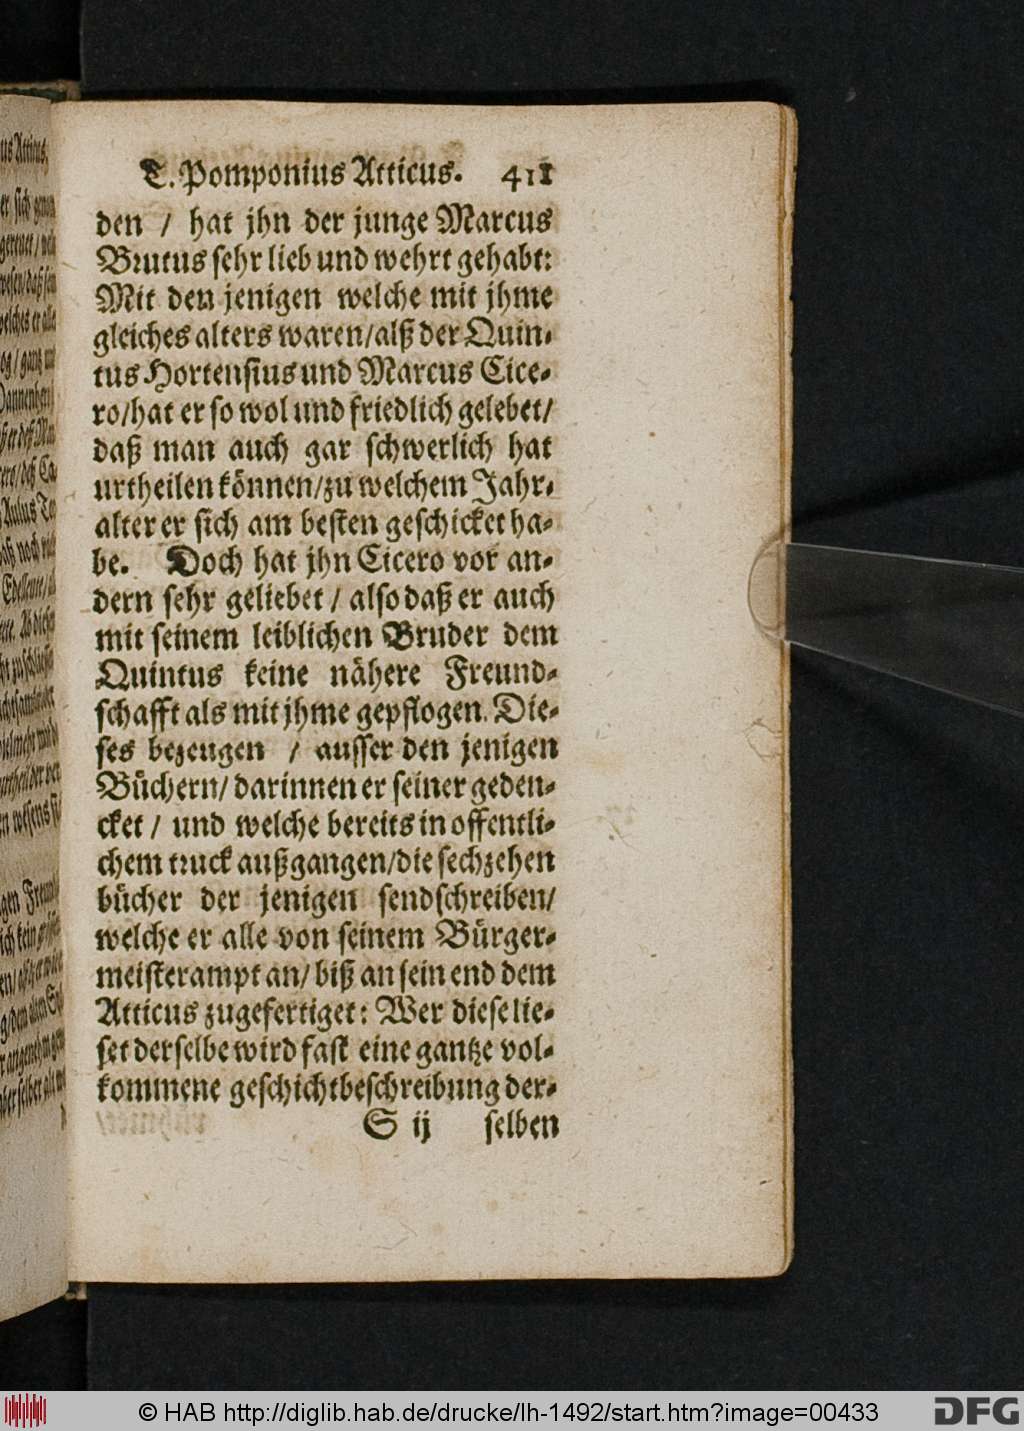 T. Pomponius Atticus. 411
den / hat jhn der junge Marcus
Brutus sehr lieb und wehrt gehabt:
Mit den jenigen welche mit jhme
gleiches alters waren/alß der Quin-
tus Hortensius und Marcus Cice-
ro/hat er so wol und friedlich gelebet/
daß man auch gar schwerlich hat
urtheilen können/zu welchem Jahr-
alter er sich am besten geschicket ha-
be. Doch hat jhn Cicero vor an-
dern sehr geliebet / also daß er auch
mit seinem leiblichen Bruder dem
Quintus keine nähere Freund-
schafft als mit jhme gepflogen. Die-
ses bezeugen / ausser den jenigen
Büchern/ darinnen er seiner geden-
cket / und welche bereits in offentli-
chem truck außgangen/die sechzehen
bücher der jenigen sendschreiben/
welche er alle von seinem Bürger-
meisterampt an/ biß an sein end dem
Atticus zugefertiget: Wer diese lie-
set derselbe wird fast eine gantze vol-
kommene geschichtbeschreibung der-
S ij selben
© HAB http://diglib.hab.de/drucke/lh-1492/start.htm?image=00433
DFG